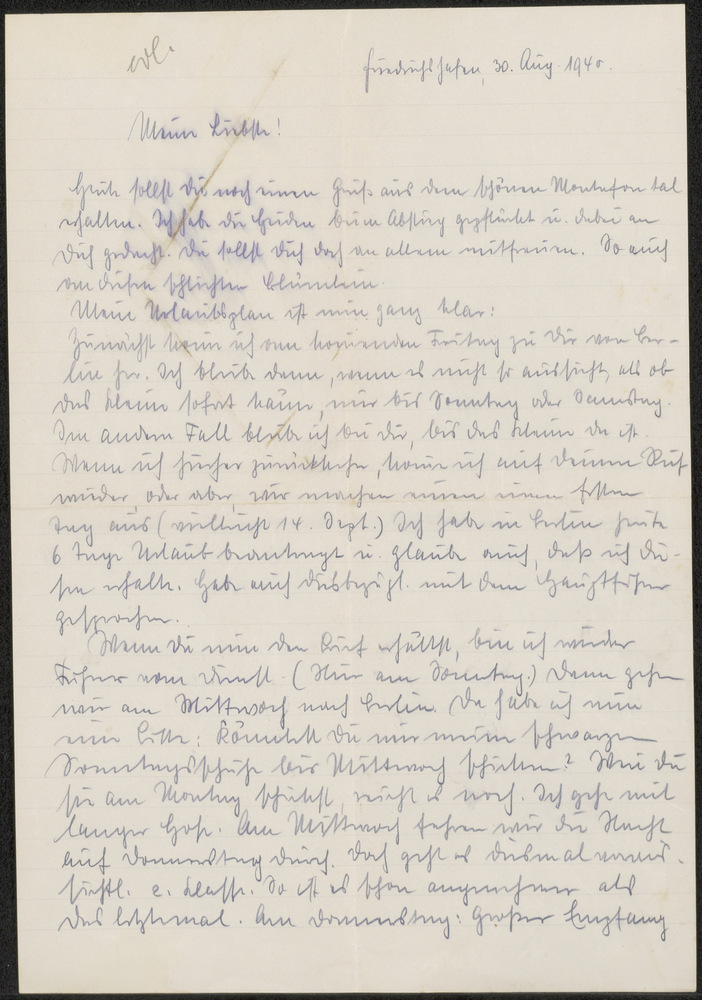 erl.
Friedrichshafen, 30. Aug. 1940.
Meine Liebste!
Heute sollst Du noch einen Gruß aus dem schönen Montafontal
erhalten. Ich habe die Heiden beim Abstieg gepflückt u. dabei an
Dich gedacht. Du sollst Dich doch an allem mitfreuen. So auch
an diesen schlichten Blümlein.
Mein Urlaubsplan ist nun ganz klar:
Zunächst komm ich am kommenden Freitag zu Dir von Ber-
lin her. Ich bleibe dann, wenn es nicht so aussieht, als ob
das Kleine sofort käme, nur bis Sonntag oder Samstag.
Im andern Fall bleibe ich bei Dir, bis das Kleine da ist.
Wenn ich hierher zurückkehre, komme ich auf Deinen Ruf
wieder, oder aber, wir machen einen festen
Tag aus (vielleicht 14. Sept.) Ich habe in Berlin heute
6 Tage Urlaub beantragt u. glaube auch, daß ich die-
sen erhalte. Habe auch diesbezügl. mit dem Hauptführer
gesprochen.
Wenn Du nun den Brief erhältst, bin ich wieder
Führer vom Dienst. (Nur am Sonntag.) Dann gehen
wir am Mittwoch nach Berlin. Da habe ich nun
eine Bitte: Könntest Du mir meine schwarzen
Sonntagsschuhe bis Mittwoch schicken? Wenn Du
sie am Montag schickst, reicht es noch. Ich gehe mit
langer Hose. Am Mittwoch fahren wir die Nacht
auf Donnerstag durch. Doch geht es diesmal voraus-
sichtl. 2. Klasse. So ist es schon angenehmer als
das letztemal. Am Donnerstag: Großer Empfang